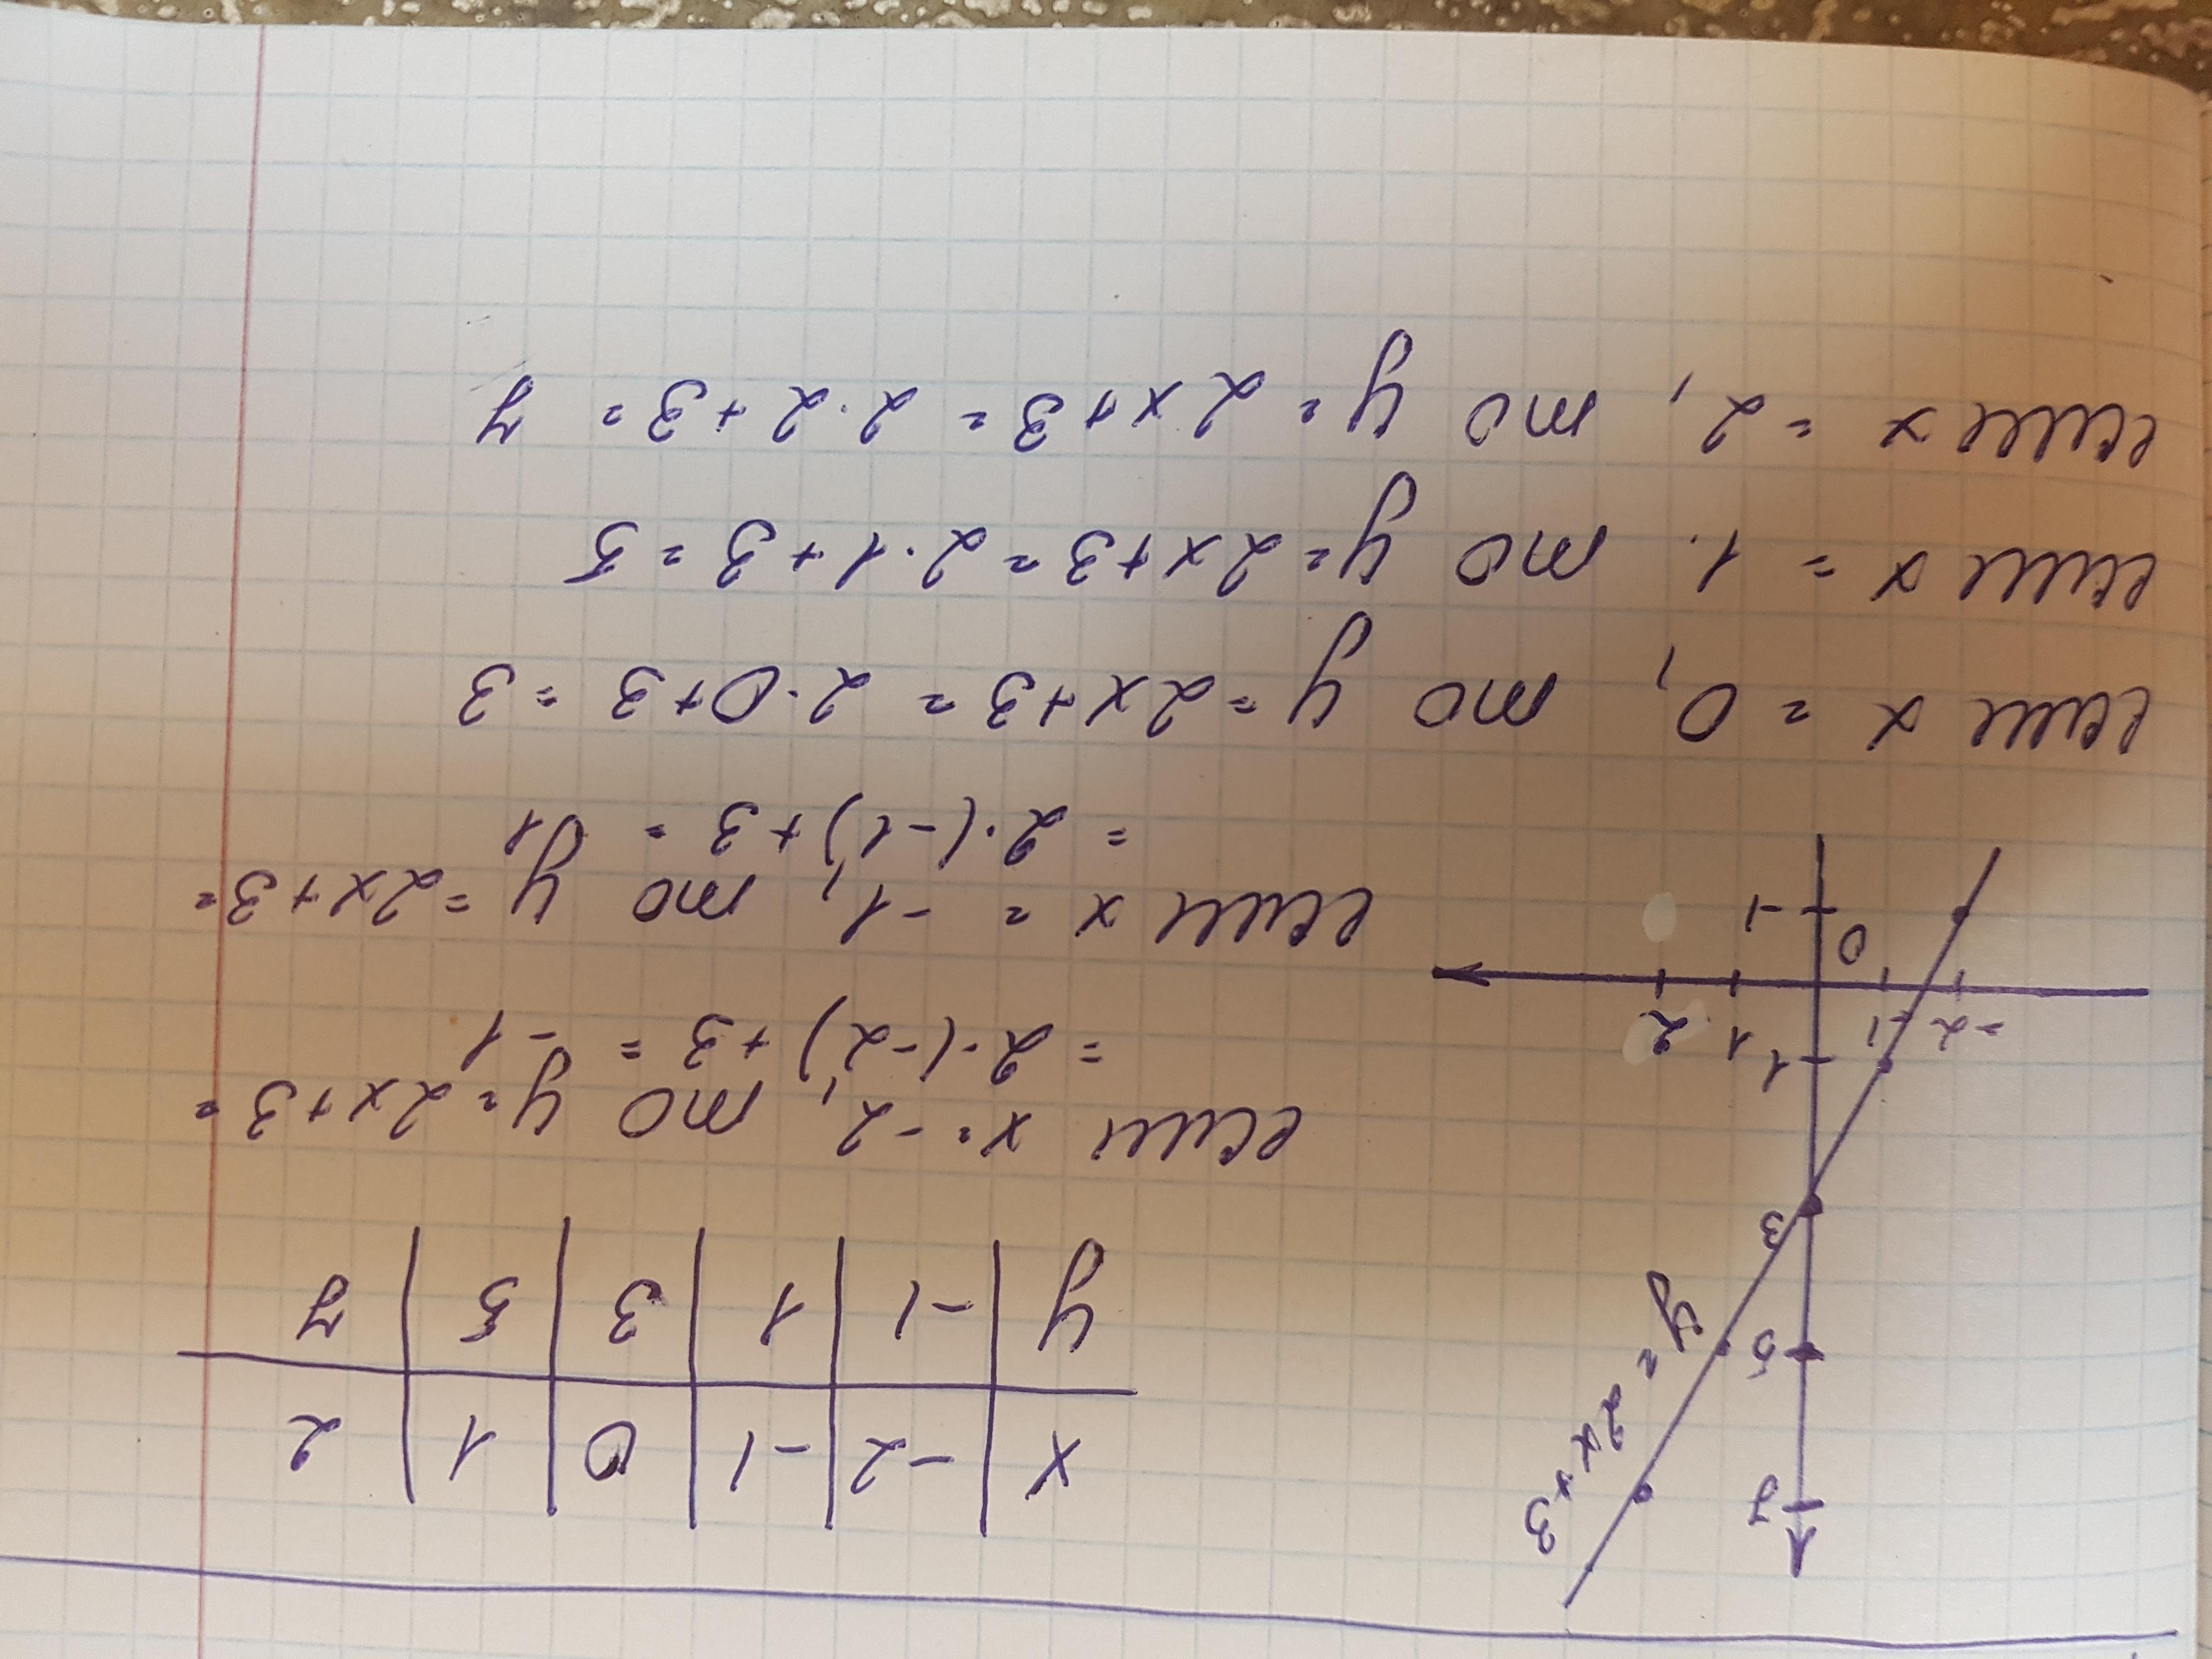 7
5
3
1
-1
0
-2 -1 1 2
y = 2x+3
x | -2 | -1 | 0 | 1 | 2
y | -1 | 1 | 3 | 5 | 7
если x = -2, то y = 2x+3 =
= 2·(-2) + 3 = -1
если x = -1, то y = 2x+3 =
= 2·(-1) + 3 = 1
если x = 0, то y = 2x+3 = 2·0+3 = 3
если x = 1. то y = 2x+3 = 2·1+3 = 5
если x = 2, то y = 2x+3 = 2·2+3 = 7